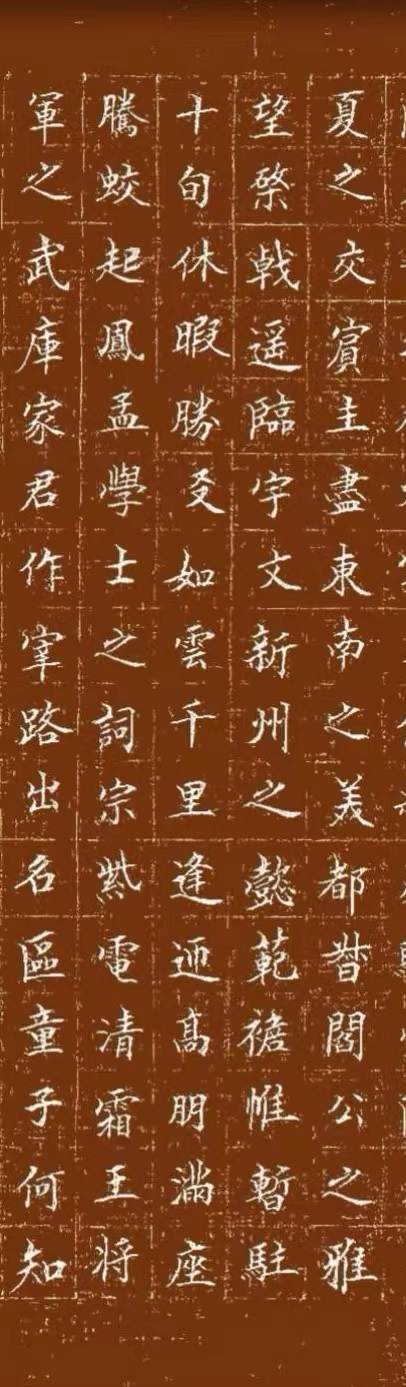 夏之交賔主盡東南之美都督閻公之雅
望棨戟遥臨宇文新州之懿範襜惟暫駐
十旬休暇勝友如雲千里逢迎高朋滿座
騰蛟起鳳孟學士之詞宗紫電清霜王将
軍之武庫家君作宰路出名區童子何知